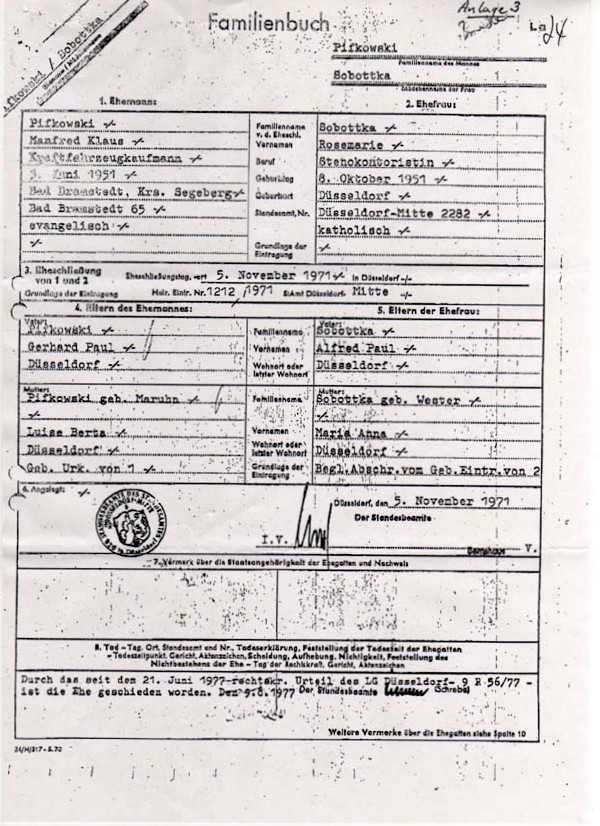 Anlage 3
Familienbuch
Pifkowski
Familienname des Mannes
Sobottka
Mädchenname der Frau
Pifkowski / Sobottka
1. Ehemann:
2. Ehefrau:
Pifkowski -/- Familienname v. d. Eheschl. Sobottka -/-
Manfred Klaus -/- Vornamen Rosemarie -/-
Kraftfahrzeugkaufmann -/- Beruf Stenokontoristin -/-
3. Juni 1951 -/- Geburtstag 8. Oktober 1951 -/-
Bad Bramstedt, Krs. Segeberg -/- Geburtsort Düsseldorf -/-
Bad Bramstedt 65 -/- Standesamt, Nr. Düsseldorf-Mitte 2282 -/-
evangelisch -/- katholisch -/-
-/- Grundlage der Eintragung -/-
3. Eheschließung von 1 und 2 Eheschließungstag, -ort 5. November 1971 -/- in Düsseldorf -/-
Grundlage der Eintragung Heir. Eintr. Nr. 1212 /1971 StAmt Düsseldorf- Mitte -/-
4. Eltern des Ehemannes:
5. Eltern der Ehefrau:
Vater: Vater:
Pifkowski -/- Familienname Sobottka -/-
Gerhard Paul -/- Vornamen Alfred Paul -/-
Düsseldorf -/- Wohnort oder letzter Wohnort Düsseldorf -/-
Mutter: Mutter:
Pifkowski geb. Maruhn -/- Familienname Sobottka geb. Wester -/-
-/- -/-
Luise Berta -/- Vornamen Maria Anna -/-
Düsseldorf -/- Wohnort oder letzter Wohnort Düsseldorf -/-
Geb. Urk. von 1 -/- Grundlage der Eintragung Begl.Abschr.vom Geb.Eintr.von 2
6. Angelegt: -/- Düsseldorf, den 5. November 1971
Der Standesbeamte
I.V.
V.
7. Vermerk über die Staatsangehörigkeit der Ehegatten und Nachweis
8. Tod – Tag, Ort, Standesamt und Nr., Todeserklärung, Feststellung der Todeszeit der Ehegatten
– Todeszeitpunkt, Gericht, Aktenzeichen, Scheidung, Aufhebung, Nichtigkeit, Feststellung des
Nichtbestehens der Ehe – Tag der Rechtskraft, Gericht, Aktenzeichen
Durch das seit dem 21. Juni 1977 rechtskr. Urteil des LG Düsseldorf- 9 R 56/77 -
ist die Ehe geschieden worden. Den 9.8.1977 Der Standesbeamte (Schrebe)
Weitere Vermerke über die Ehegatten siehe Spalte 10